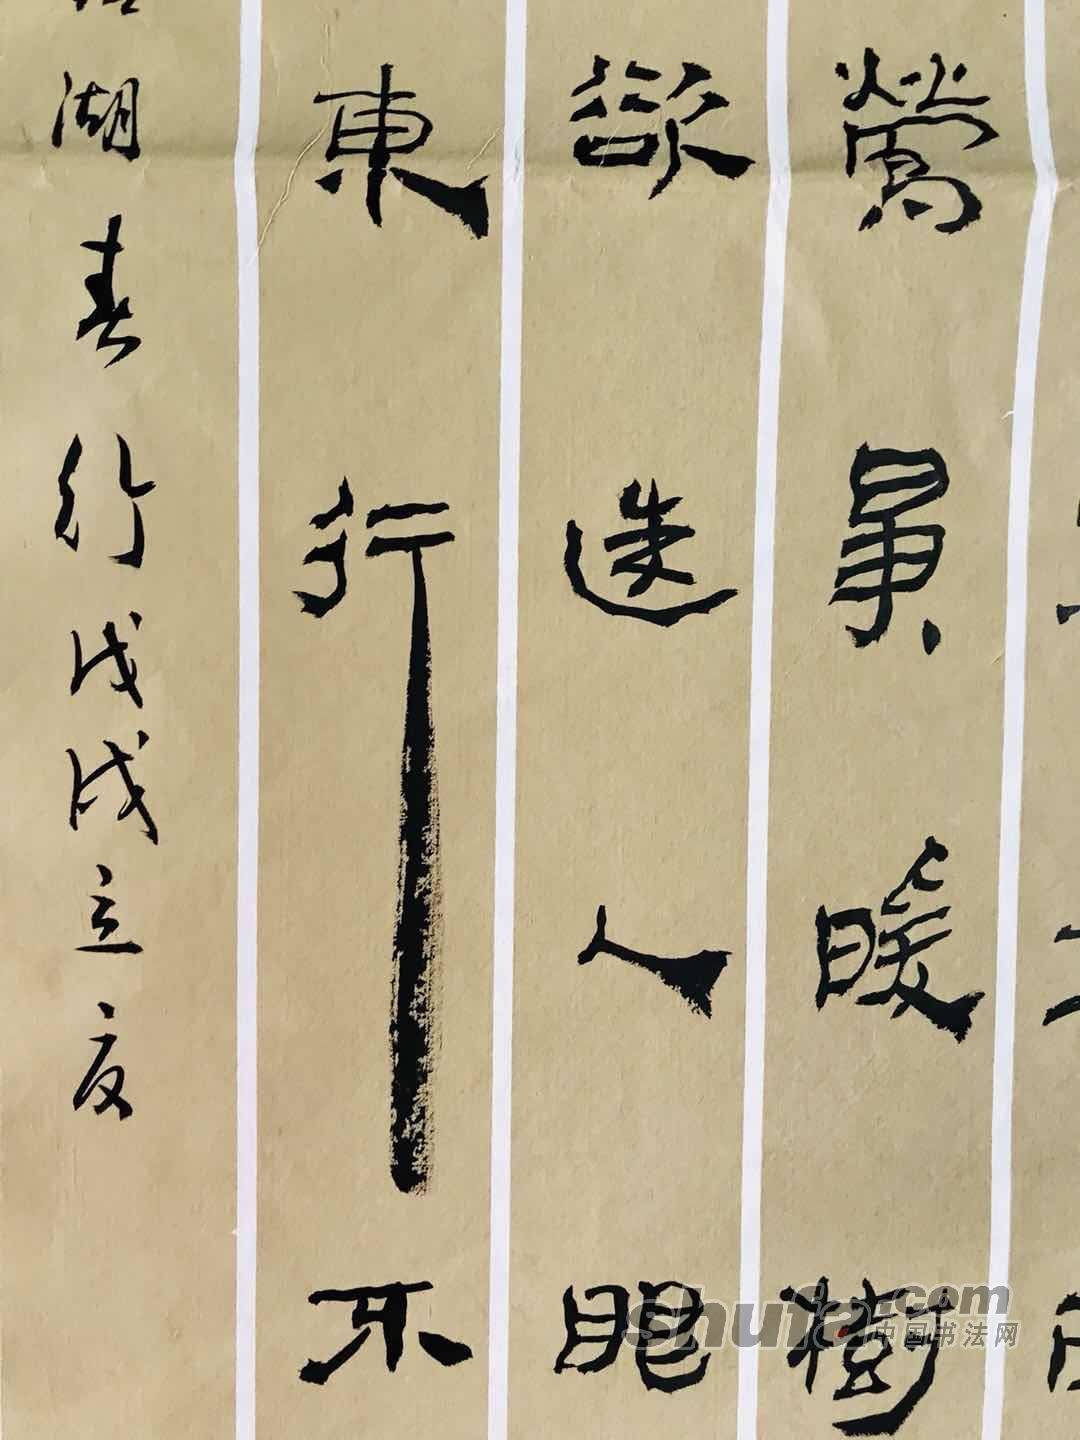 鶯爭暖樹
欲迷人眼
東行不
湖春行戊戌立夏
shufa.com
中国书法网